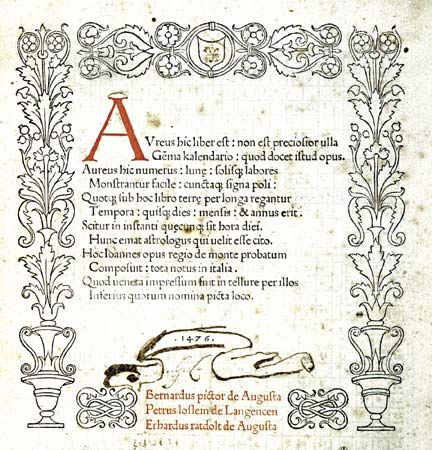 AVreus hic liber est : non est preciosior ulla
Gēma kalendario : quod docet istud opus.
Aureus hic numerus : lune : solisq; labores
Monstrantur facile : cunctaq; signa poli :
Quotq; sub hoc libro terre per longa regantur
Tempora : quisq; dies : mensis : & annus erit.
Scitur in instanti quecunq; sit hora diei.
Hunc emat astrologus qui uelit esse cito.
Hoc Ioannes opus regio de monte probatum
Composuit : tota notus in italia.
Quod ueneta impressum fuit in tellure per illos
Inferius quorum nomina picta loco.
1476.
Bernardus pictor de Augusta
Petrus loslein de Langencen
Erhardus ratdolt de Augusta